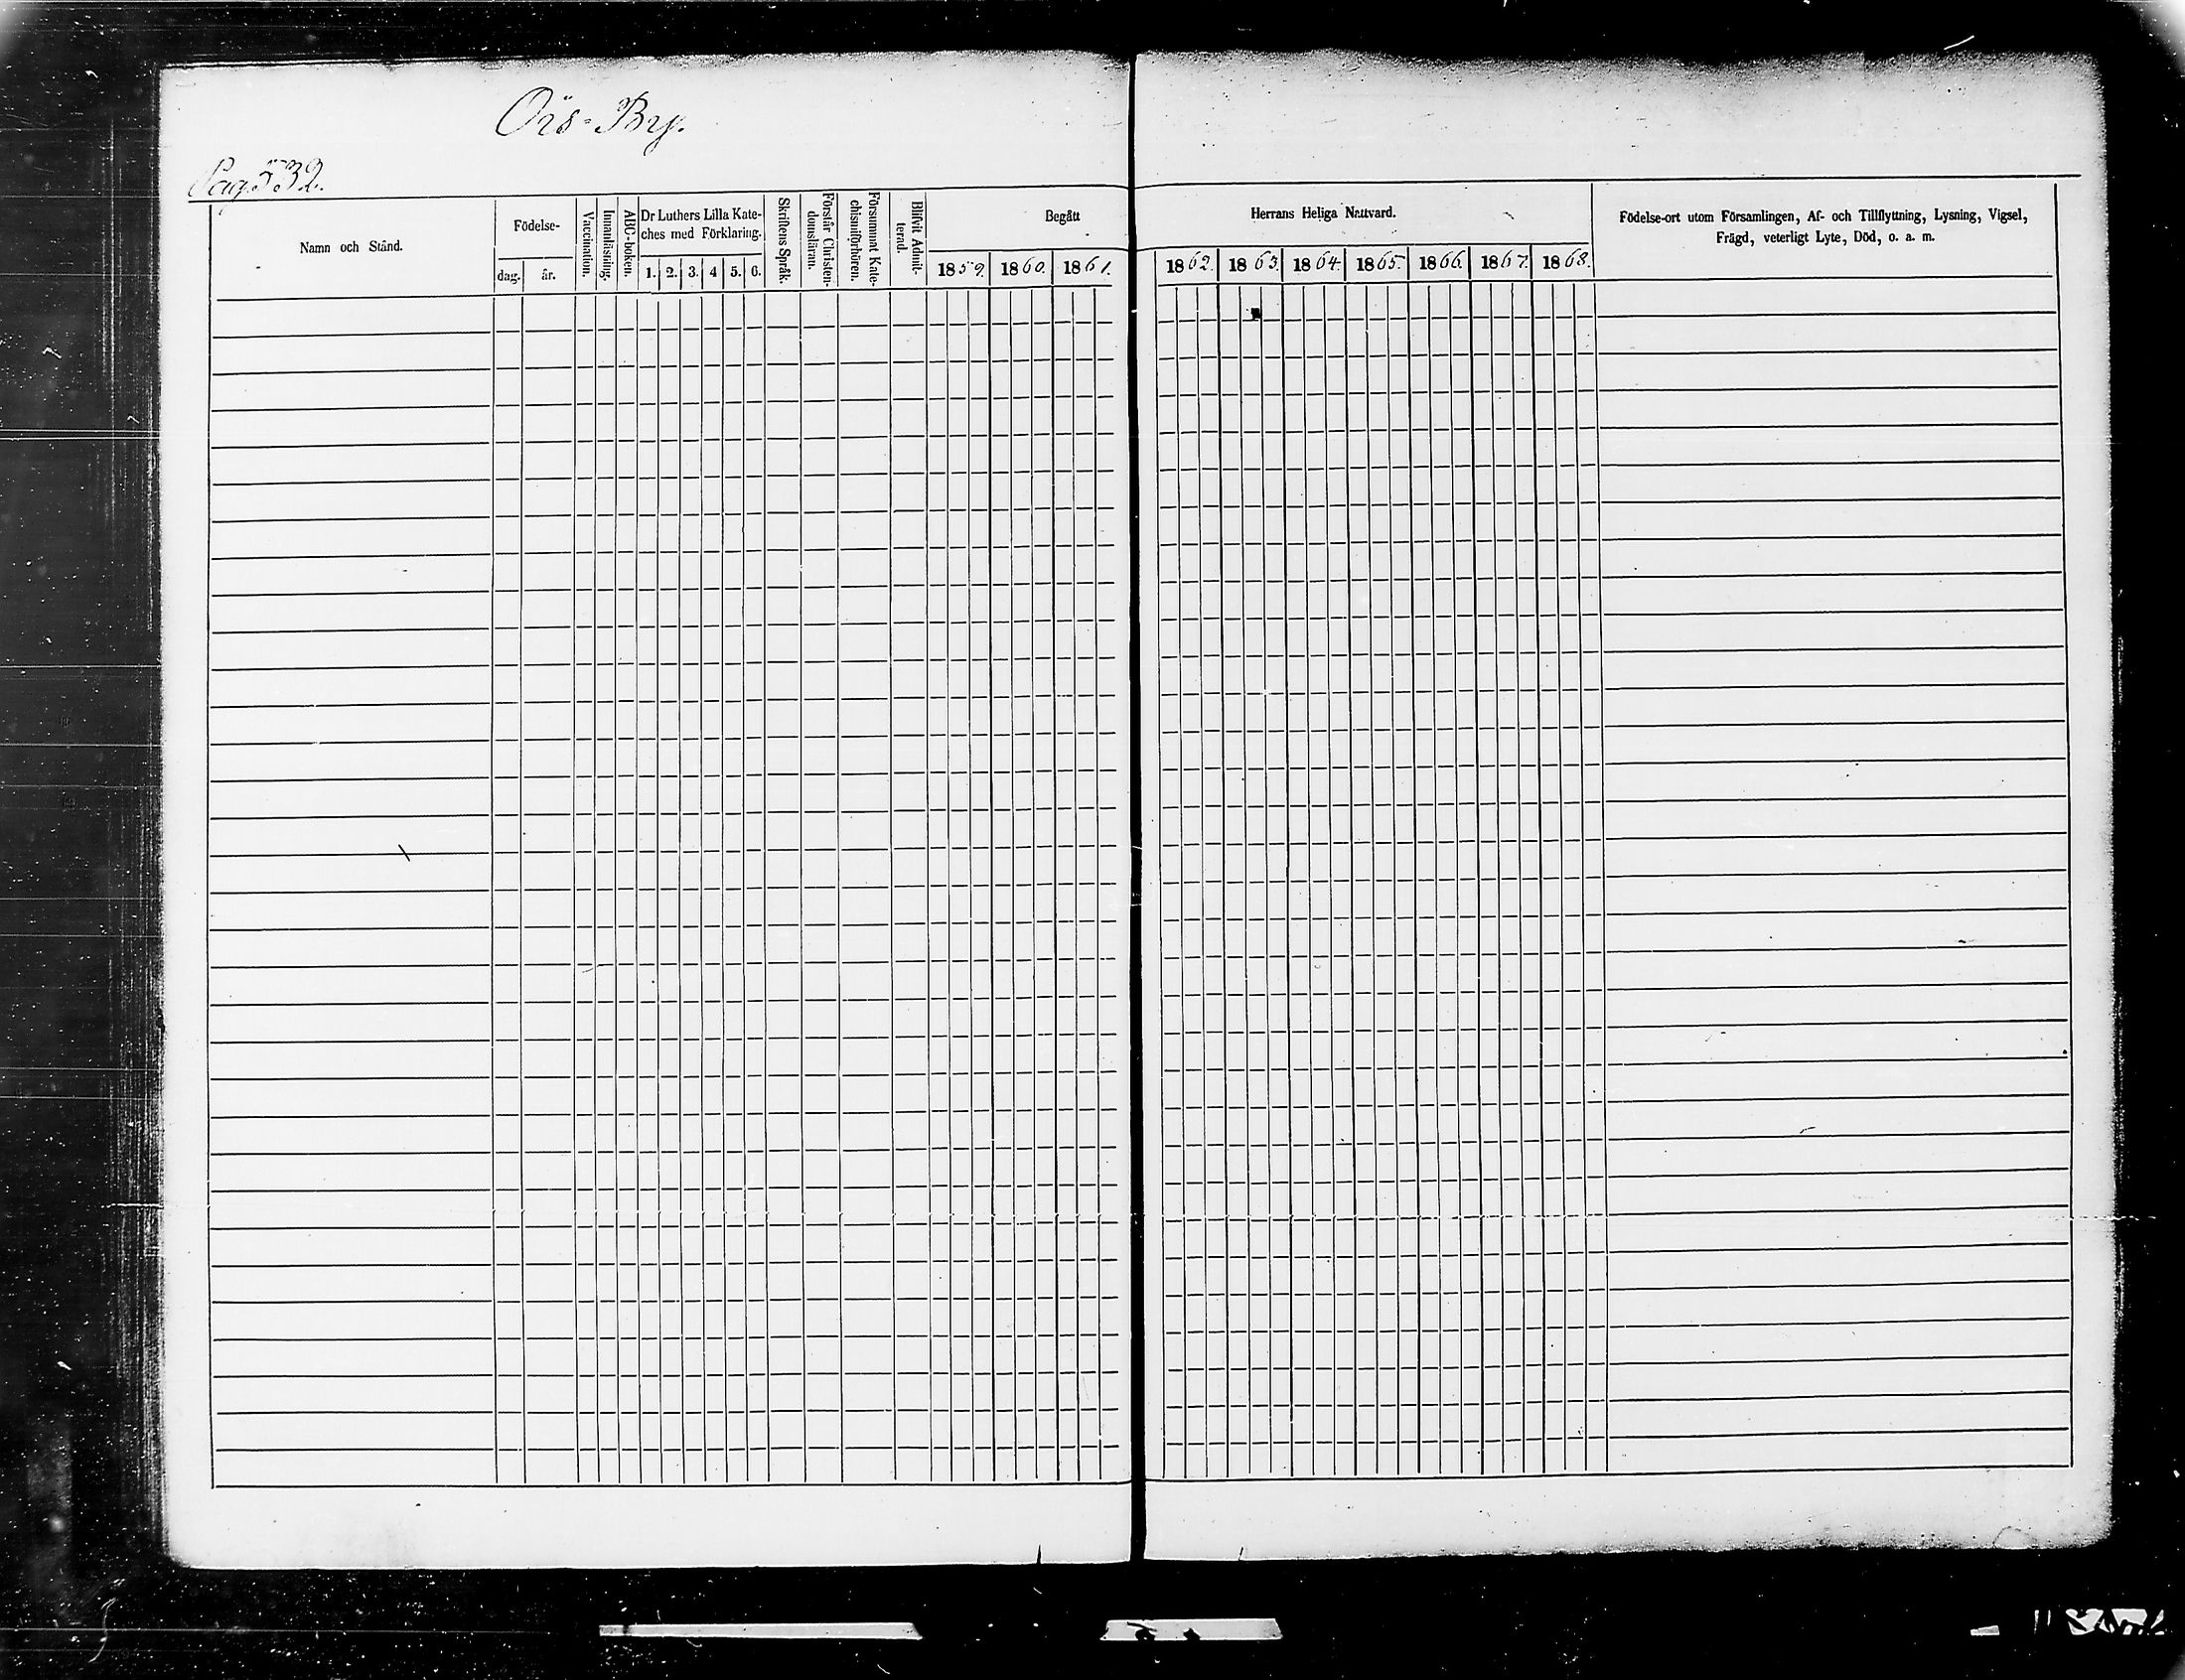 Öis-By.
Pag. 532.
Namn och Stånd.
Födelse-
dag.
år.
Vaccination.
Innanläsning.
ABC-boken.
Dr Luthers Lilla Kate-
ches med Förklaring.
1. 2. 3. 4 5. 6.
Skriftens Språk.
Förstår Christen-
domsläran.
Försummat Kate-
chismiförhören.
Blifvit Admit-
terad.
Begått
1859. 1860. 1861.
Herrans Heliga Nattvard.
1862. 1863. 1864. 1865. 1866. 1867. 1868.
Födelse-ort utom Församlingen, Af- och Tillflyttning, Lysning, Vigsel,
Frägd, veterligt Lyte, Död, o. a. m.